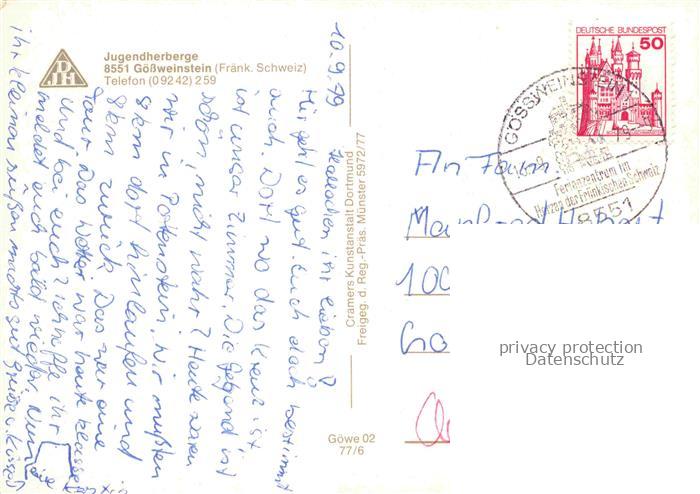 Jugendherberge
8551 Gößweinstein (Fränk. Schweiz)
Telefon (0 92 42) 2 59
DJH
10.9.79
Hallöchen ihr lieben!
Mir geht es gut. Euch doch bestimmt
auch. Dort wo das Kreuz ist
ist unser Zimmer. Die Gegend ist
schön, nicht wahr? Heute waren
wir in Pottenstein. Wir mußten
8km dort hinlaufen und
8km zurück. Das war eine
Tour. Das Wetter war heute klasse.
Und bei euch? Ich hoffe ihr
meldet euch bald wieder. Nun
ihr kleinen süßen macht's gut Grüße u. Küsse
Cramers Kunstanstalt Dortmund
Freigeg. d. Reg.-Präs. Münster 5972/77
Göwe 02
77/6
DEUTSCHE BUNDESPOST
50
GÖSSWEINSTEIN
Ferienzentrum im
Herzen der Fränkischen Schweiz
8551
An Fam.
100
privacy protection
Datenschutz